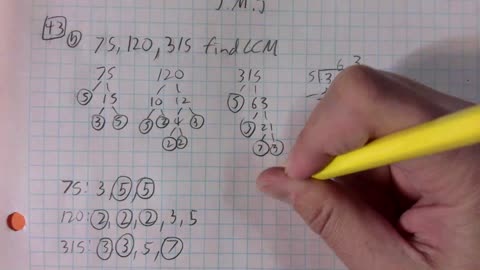 J.M.J
43 b) 75, 120, 315 find LCM
75 120 315
5 15 10 12 5 63
3 5 5 2 4 3 3 21
2 2 7 3
6 3
5 3
75: 3, 5, 5
120: 2, 2, 2, 3, 5
315: 3, 3, 5, 7